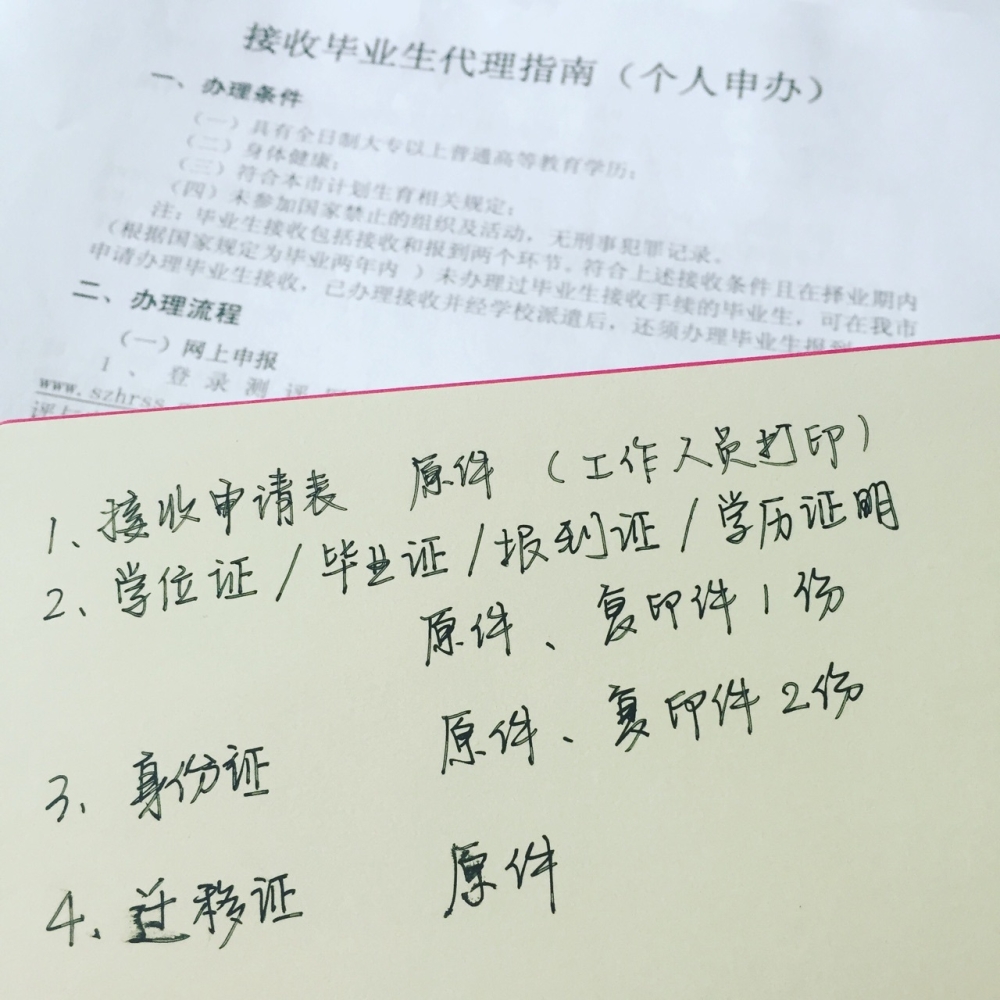 接收毕业生代理指南（个人申办）
一、办理条件
（一）具有全日制大专以上普通高等教育学历；
（二）身体健康；
（三）符合本市计划生育相关规定；
（四）未参加国家禁止的组织及活动，无刑事犯罪记录。
注：毕业生接收包括接收和报到两个环节。符合上述接收条件且在择业期内
（根据国家规定为毕业两年内）未办理过毕业生接收手续的毕业生，可在我市
申请办理毕业生接收，已办理接收并经学校派遣后，还须办理毕业生报到
二、办理流程
（一）网上申报
1、登录测评
www.szhrss
1、接收申请表 原件（工作人员打印）
2、学位证/毕业证/报到证/学历证明
原件、复印件1份
3、身份证 原件、复印件2份
4、迁移证 原件